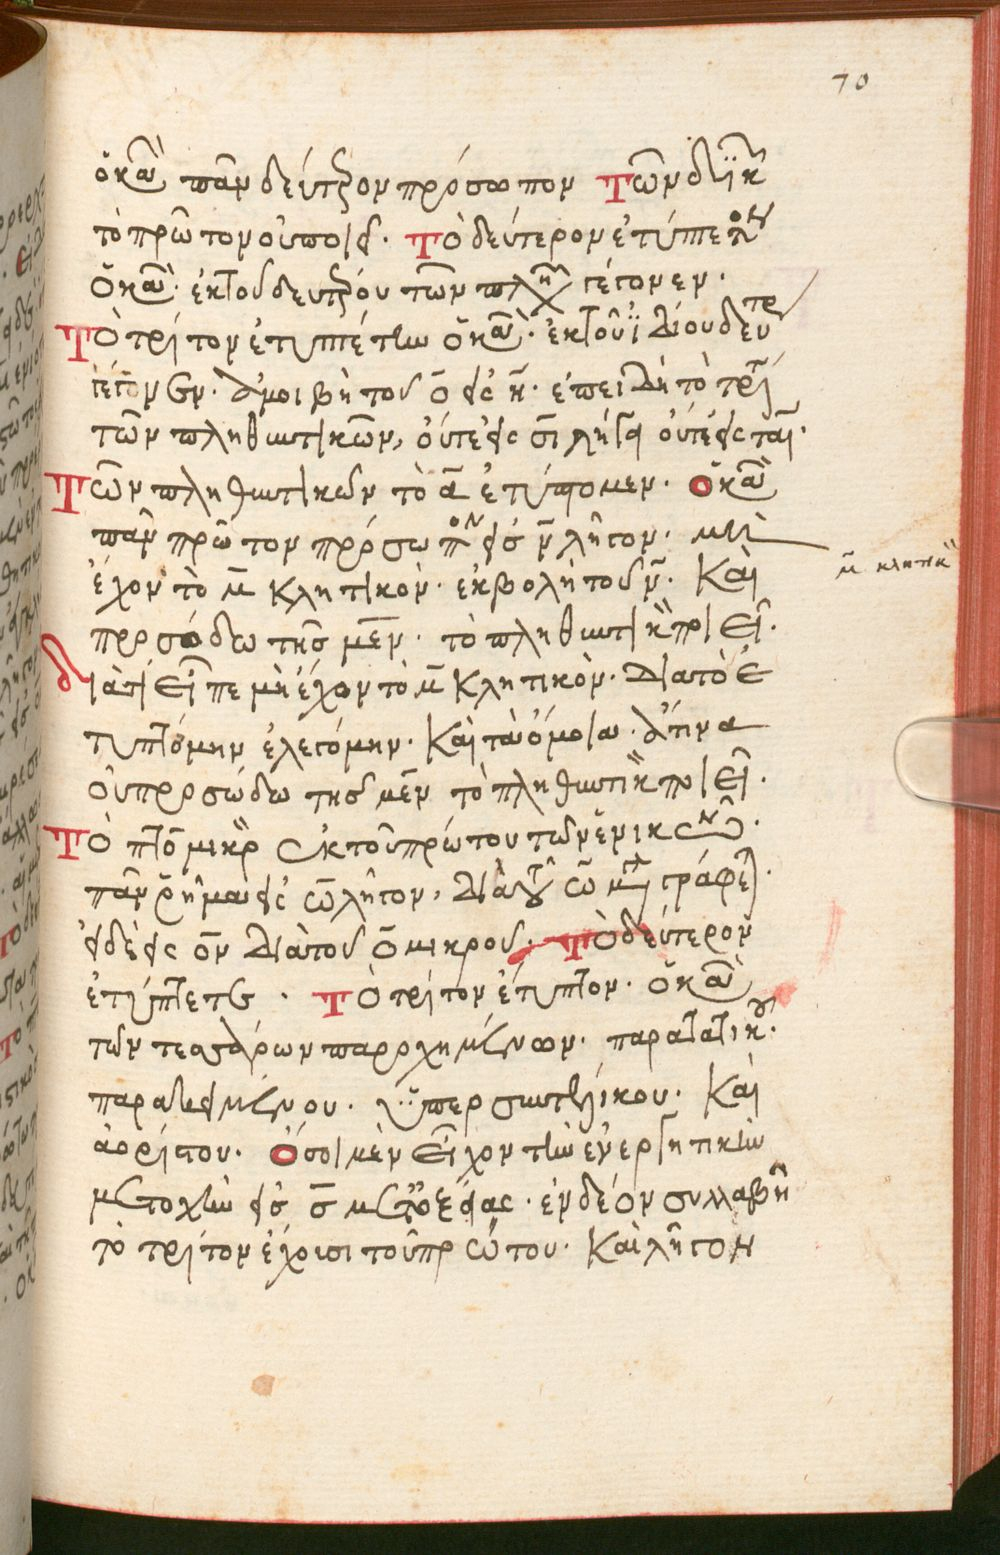 70
ὁ κανὼν πᾶν δεύτερον πρόσωπον Τῶν δυϊκῶν
τὸ πρῶτον οὐ ποιεῖ. Τὸ δεύτερον ἐτύπτετον
ὁ κανὼν ἐκ τοῦ δευτέρου τῶν πλη γέγονεν.
Τὸ τρίτον ἐτυπτέτην ὁ κανὼν. ἐκ τοῦ ἰδίου δευτέρου
γέγονεν. ἀμοιβῇ τοῦ ο εἰς η. ἐπειδὴ τὸ τρί
τῶν πληθυντικῶν, οὔτε εἰς σι λήγει οὔτε εἰς ται.
Τῶν πληθυντικῶν τὸ α ἐτύπτομεν. ὁ κανὼν
πᾶν πρῶτον πρόσωπον εἰς ν λῆγον. μὴ
ἔχον τὸ μ κλητικὸν. ἐκβολῇ τοῦ ν. Καὶ
μ κλητικὸν
προσόδω τῆς μεν. τὸ πληθυντικὸν ποιεῖ.
διατί εἶπε μὴ ἔχον τὸ μ κλητικὸν. Διὰ τὸ ἐ
τυπτόμην ἐλεγόμην. Καὶ τὰ ὅμοια. ἅτινα
οὐ προσώδω τῆς μεν τὸ πληθυντικὸν ποιεῖ.
Τὸ πτο μικρὸν ἐκ τοῦ πρώτου τῶν ἑνικῶν.
πᾶν ῥῆμα εἰς ω λῆγον, διὰ τοῦ ω μεγάλου γράφει.
εἰ δὲ εἰς ον διὰ τοῦ ο μικροῦ. Τὸ δεύτερον
ἐτύπτετε. Τὸ τρίτον ἔτυπτον. ὁ κανὼν
τῶν τεσσάρων παρῳχημένων. παρατατικοῦ.
παρακειμένου. ὑπερσυντελίκου. Καὶ
ἀορίστου. Ὅσοι μὲν εἶχον τὴν ἐνεργητικὴν
μετοχὴν εἰς ς μετ ὀξείας. ἐνδέον συλλαβῇ
τὸ τρίτον ἔχουσι τοῦ πρώτου. Καὶ λῆγον